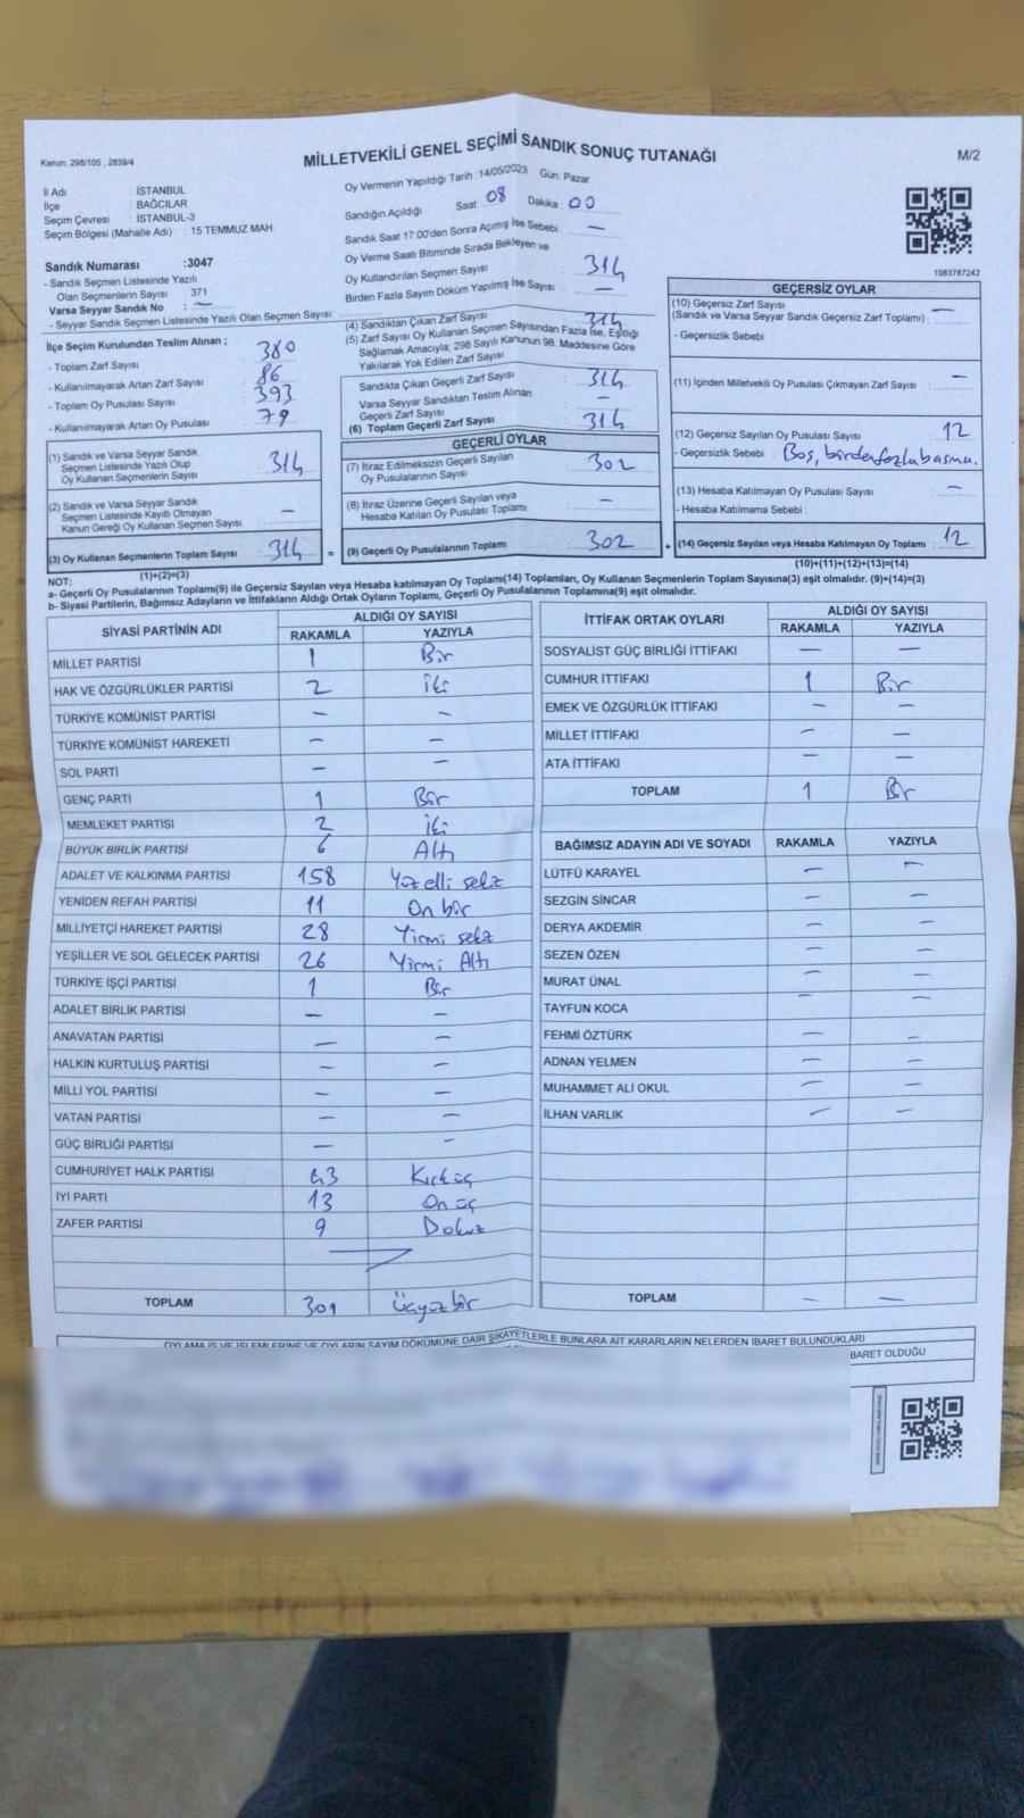 Kanun: 298/105 , 2839/4
MİLLETVEKİLİ GENEL SEÇİMİ SANDIK SONUÇ TUTANAĞI
M/2
İl Adı İSTANBUL
İlçe BAĞCILAR
Seçim Çevresi : İSTANBUL-3
Seçim Bölgesi (Mahalle Adı) : 15 TEMMUZ MAH
Sandık Numarası :3047
- Sandık Seçmen Listesinde Yazılı
Olan Seçmenlerin Sayısı 371
Varsa Seyyar Sandık No : —
- Seyyar Sandık Seçmen Listesinde Yazılı Olan Seçmen Sayısı
İlçe Seçim Kurulundan Teslim Alınan ;
- Toplam Zarf Sayısı 380
- Kullanılmayarak Artan Zarf Sayısı 86
- Toplam Oy Pusulası Sayısı 393
- Kullanılmayarak Artan Oy Pusulası 79
(1) Sandık ve Varsa Seyyar Sandık
Seçmen Listesinde Yazılı Olup
Oy Kullanan Seçmenlerin Sayısı 314
(2) Sandık ve Varsa Seyyar Sandık
Seçmen Listesinde Kayıtlı Olmayan
Kanun Gereği Oy Kullanan Seçmen Sayısı —
(3) Oy Kullanan Seçmenlerin Toplam Sayısı 314
(1)+(2)=(3)
Oy Vermenin Yapıldığı Tarih :14/05/2023 Gün: Pazar
Sandığın Açıldığı Saat: 08 Dakika: 00
Sandık Saat 17:00'den Sonra Açılmış İse Sebebi —
Oy Verme Saati Bitiminde Sırada Bekleyen ve
Oy Kullandırılan Seçmen Sayısı 314
Birden Fazla Sayım Döküm Yapılmış İse Sayısı —
(4) Sandıktan Çıkan Zarf Sayısı 314
(5) Zarf Sayısı Oy Kullanan Seçmen Sayısından Fazla İse, Eşitliği
Sağlamak Amacıyla; 298 Sayılı Kanunun 98. Maddesine Göre
Yakılarak Yok Edilen Zarf Sayısı
Sandıkta Çıkan Geçerli Zarf Sayısı 314
Varsa Seyyar Sandıktan Teslim Alınan
Geçerli Zarf Sayısı —
(6) Toplam Geçerli Zarf Sayısı 314
GEÇERLİ OYLAR
(7) İtiraz Edilmeksizin Geçerli Sayılan
Oy Pusulalarının Sayısı 302
(8) İtiraz Üzerine Geçerli Sayılan veya
Hesaba Katılan Oy Pusulası Toplamı —
= (9) Geçerli Oy Pusulalarının Toplamı 302
1083787242
GEÇERSİZ OYLAR
(10) Geçersiz Zarf Sayısı
(Sandık ve Varsa Seyyar Sandık Geçersiz Zarf Toplamı) : —
- Geçersizlik Sebebi
(11) İçinden Milletvekili Oy Pusulası Çıkmayan Zarf Sayısı —
(12) Geçersiz Sayılan Oy Pusulası Sayısı 12
- Geçersizlik Sebebi Boş, birden fazla basma.
(13) Hesaba Katılmayan Oy Pusulası Sayısı —
- Hesaba Katılmama Sebebi
+ (14) Geçersiz Sayılan veya Hesaba Katılmayan Oy Toplamı 12
(10)+(11)+(12)+(13)=(14)
NOT:
a- Geçerli Oy Pusulalarının Toplamı(9) ile Geçersiz Sayılan veya Hesaba katılmayan Oy Toplamı(14) Toplamları, Oy Kullanan Seçmenlerin Toplam Sayısına(3) eşit olmalıdır. (9)+(14)=(3)
b- Siyasi Partilerin, Bağımsız Adayların ve İttifakların Aldığı Ortak Oyların Toplamı, Geçerli Oy Pusulalarının Toplamına(9) eşit olmalıdır.
SİYASİ PARTİNİN ADI ALDIĞI OY SAYISI
RAKAMLA YAZIYLA
MİLLET PARTİSİ 1 Bir
HAK VE ÖZGÜRLÜKLER PARTİSİ 2 İki
TÜRKİYE KOMÜNİST PARTİSİ — —
TÜRKİYE KOMÜNİST HAREKETİ — —
SOL PARTİ — —
GENÇ PARTİ 1 Bir
MEMLEKET PARTİSİ 2 İki
BÜYÜK BİRLİK PARTİSİ 6 Altı
ADALET VE KALKINMA PARTİSİ 158 Yüz elli sekiz
YENİDEN REFAH PARTİSİ 11 On bir
MİLLİYETÇİ HAREKET PARTİSİ 28 Yirmi sekz
YEŞİLLER VE SOL GELECEK PARTİSİ 26 Yirmi Altı
TÜRKİYE İŞÇİ PARTİSİ 1 Bir
ADALET BİRLİK PARTİSİ — —
ANAVATAN PARTİSİ — —
HALKIN KURTULUŞ PARTİSİ — —
MİLLİ YOL PARTİSİ — —
VATAN PARTİSİ — —
GÜÇ BİRLİĞİ PARTİSİ — —
CUMHURİYET HALK PARTİSİ 43 Kırküç
İYİ PARTİ 13 On üç
ZAFER PARTİSİ 9 Dokuz
TOPLAM 301 Üçyüz bir
İTTİFAK ORTAK OYLARI ALDIĞI OY SAYISI
RAKAMLA YAZIYLA
SOSYALİST GÜÇ BİRLİĞİ İTTİFAKI — —
CUMHUR İTTİFAKI 1 Bir
EMEK VE ÖZGÜRLÜK İTTİFAKI — —
MİLLET İTTİFAKI — —
ATA İTTİFAKI — —
TOPLAM 1 Bir
BAĞIMSIZ ADAYIN ADI VE SOYADI RAKAMLA YAZIYLA
LÜTFÜ KARAYEL — —
SEZGİN SİNCAR — —
DERYA AKDEMİR — —
SEZEN ÖZEN — —
MURAT ÜNAL — —
TAYFUN KOCA — —
FEHMİ ÖZTÜRK — —
ADNAN YELMEN — —
MUHAMMET ALİ OKUL — —
İLHAN VARLIK — —
TOPLAM — —
OYLAMA İŞ VE İŞLEMLERİNE VE OYLARIN SAYIM DÖKÜMÜNE DAİR ŞİKAYETLERLE BUNLARA AİT KARARLARIN NELERDEN İBARET BULUNDUKLARI
BARET OLDUĞU